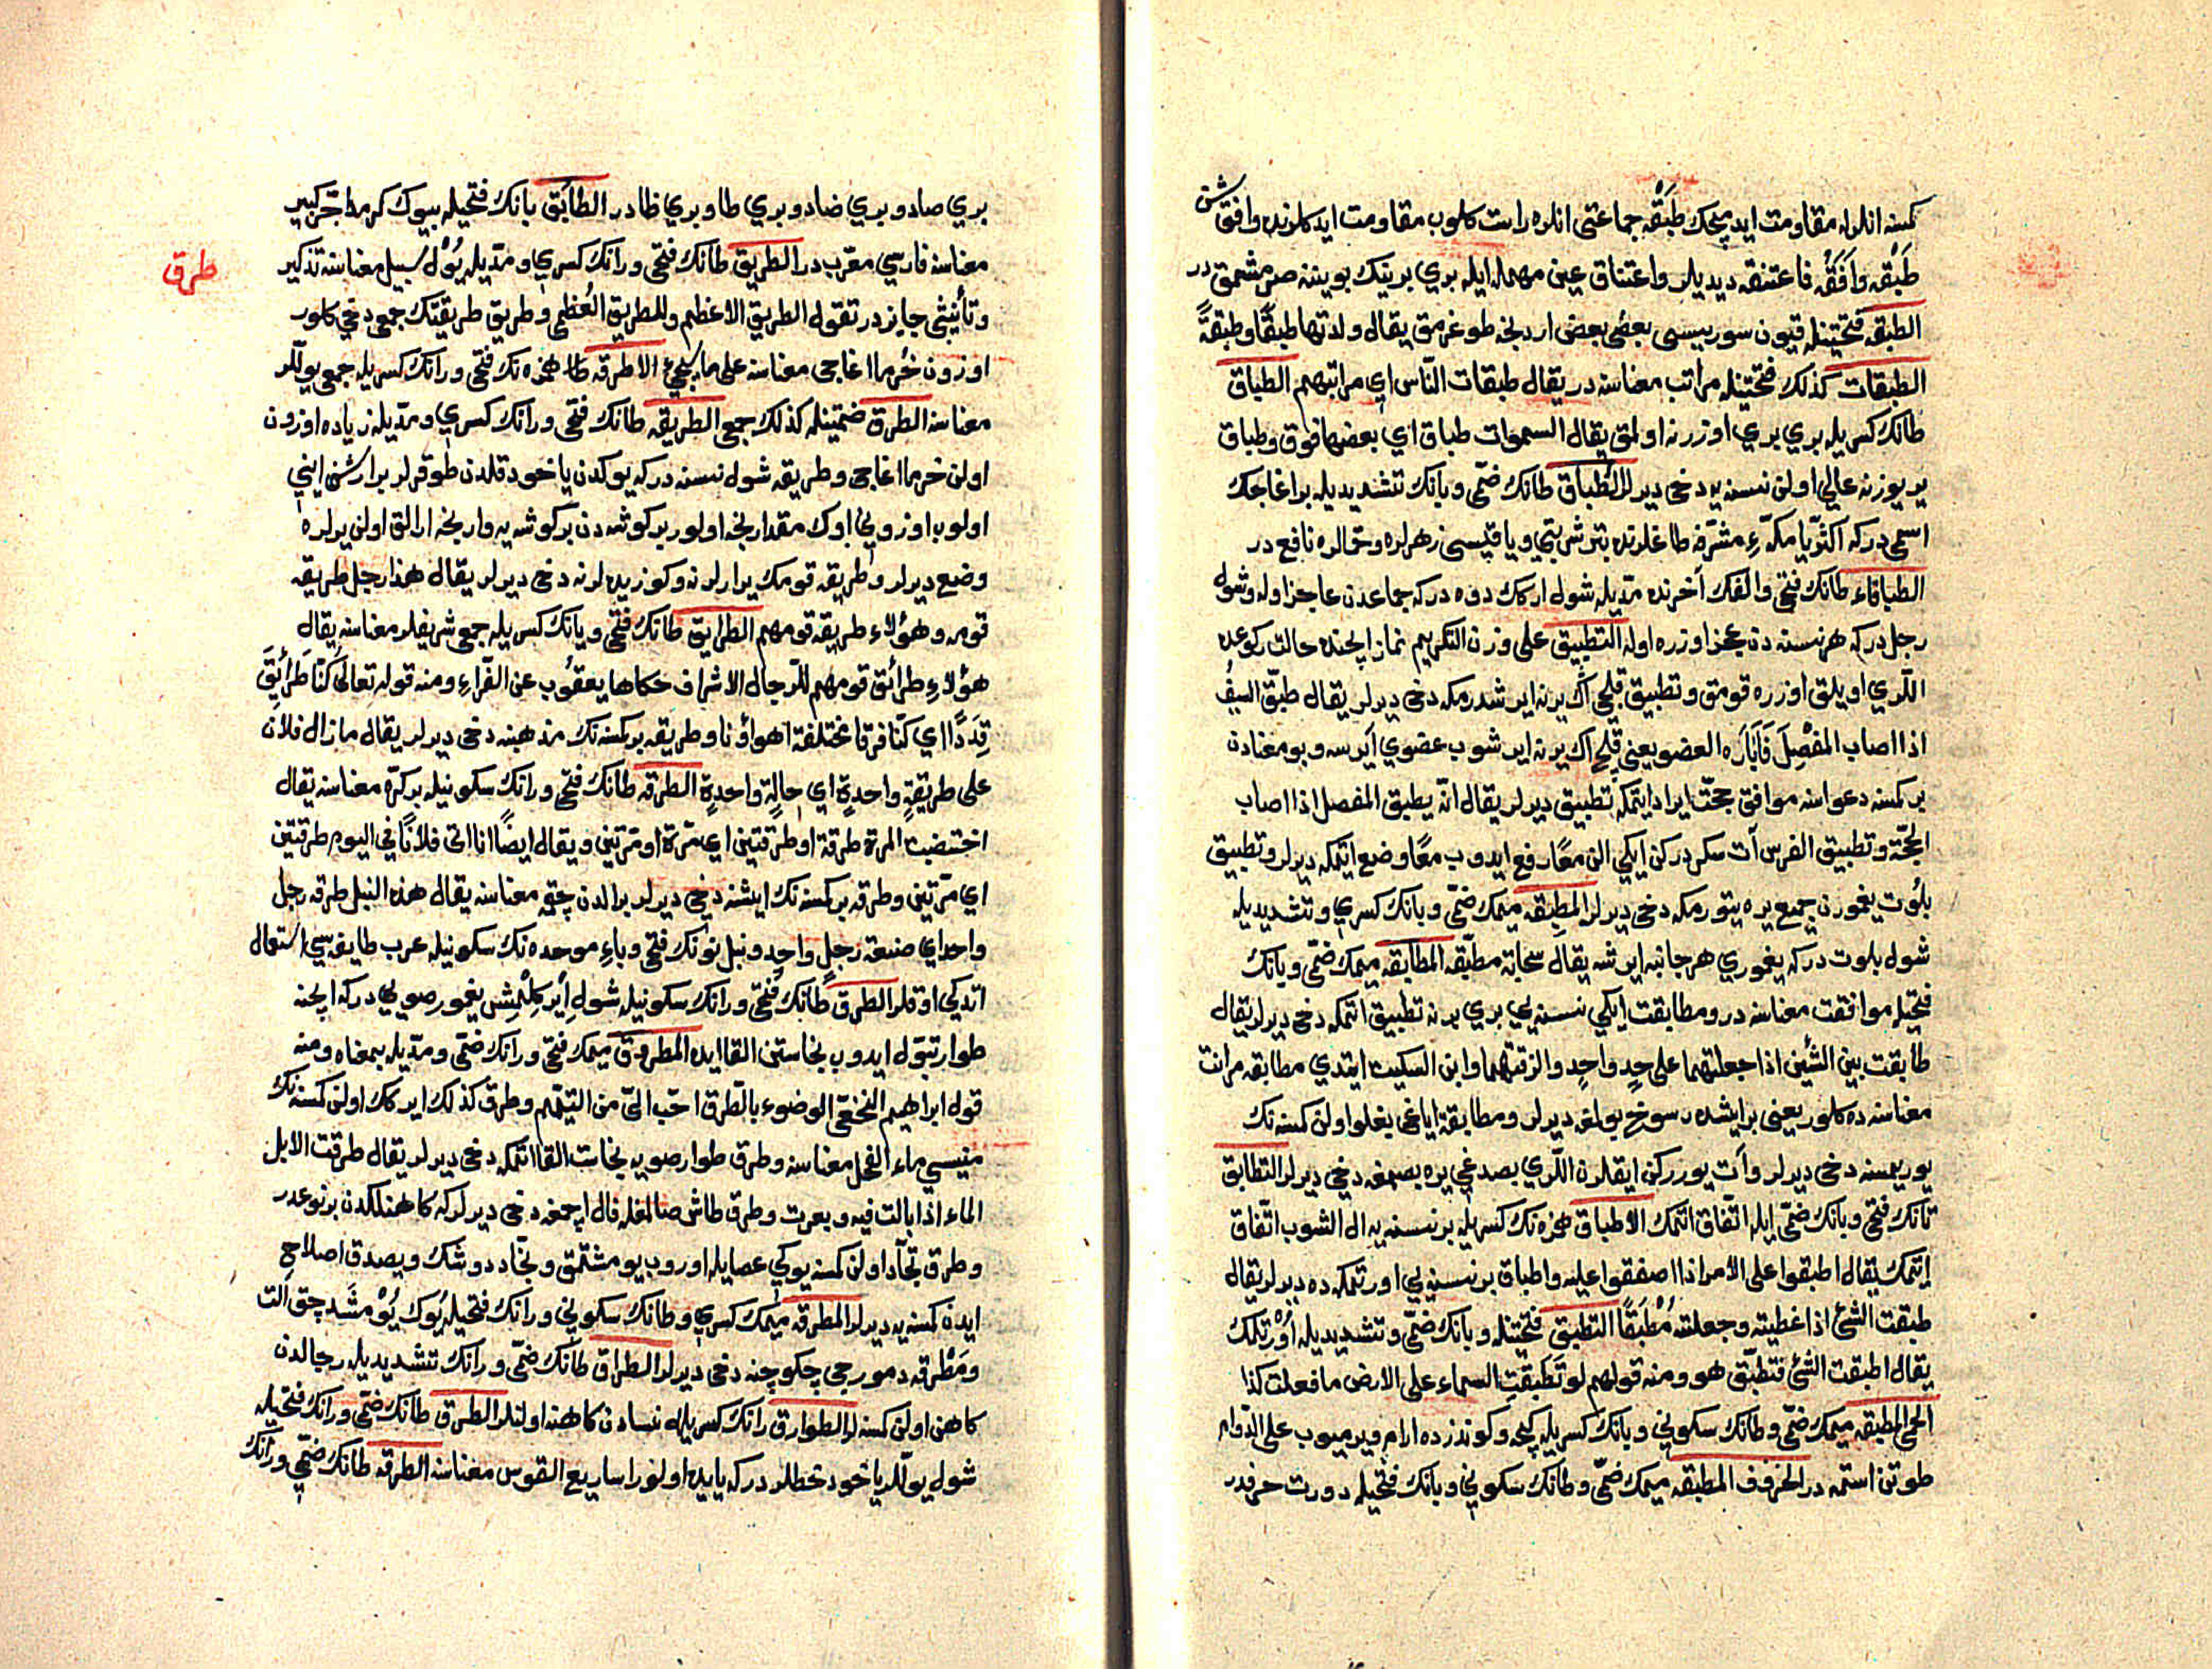 كمسنه انلرله مقاومت ايديجك طبقه جماعتى انلره راست كلوب مقاومت ايدكلرنده وافق شن
طَبَقه وَافَقَه فاعتنقه ديديلر واعتناق عين مهمله ايله بري برينك بويننه صرمشمق در
الطبقه فتحتينله قيون سوريسى بعضى بعض اردنجه طوغرمق يقال ولدتها طبقًا وطبقةً
الطبقات كذلك فتحتينله مراتب معناسنه در يقال طبقات النّاس اي مراتبهم الطباق
طانك كسريله بري بري اوزرنه اولمق يقال السموات طباق اي بعضها فوق وطباق
ير يوزنه عالي اولن نسنه يه دخى ديرلر الطُّبّاق طانك ضمّى وبانك تشديديله بر اغاجك
اسمى دركه اكثريا مكّهء مشرّفه طاغلرنده بتر شربتي وياقيسى زهرلره وتحاللره نافع در
الطباقاء طانك فتحى والفك آخرنده مدّيله شول اركك دوه دركه جماعدن عاجز اوله وشول
رجل دركه هر نسنه دن عجز اوزره اوله التطبيق على وزن التكريم نماز ايچنده حالت ركوعده
اللّري اويلق اوزره قومق وتطبيق قلجى اك يرنه ايرشدرمكه دخى ديرلر يقال طبّق السيفُ
اذا اصاب المفْصِلَ فَاَبانَه العضو يعنى قلج اك يرنه ايرشوب عضوي آيرسه وبو معنادن
بر كمسنه دعواسنه موافق حجّت ايراد ايتمكه تطبيق ديرلر يقال انّه يطبق المفصل اذا اصاب
الحجّة وتطبيق الفرس آت سكردركن ايكي الن معًا رفع ايدوب معًا وضع ايتمكه ديرلر وتطبيق
بلُوت يغمورن جميع يره يتورمكه دخى ديرلر المطبِقه ميمك ضمّى وبانك كسري وتشديديله
شول بلوت دركه يغموري هر جانبه ايرشه يقال سحابة مطبّقه المطابقه ميمك ضمّى وبانك
فتحيله موافقت معناسنه در ومطابقت ايكي نسنه يي بري برنه تطبيق اتمكه دخى ديرلر يقال
طابقت بين الشيئين اذا جعلتهما على حذٍ واحدٍ والزقتهما وابن السكيت ايتدي مطابقه مرانت
معناسنه ده كلور يعنى بر ايشده رسوخ بولمغه ديرلر ومطابقة اياغى بغلو اولن كمسنه نك
يوريمسنه دخى ديرلر وآت يوررركن ايقلرن اللّري بصدغي يره بصمغه دخى ديرلر التطابق
تانك فتحى وبانك ضمّى ايله اتّفاق اتمك الاطباق همزه نك كسريله بر نسنه يه ال الشوب اتّفاق
ايتمك يقال اطبقوا على الامر اذا اصفقوا عليه واطباق بر نسنه يي اورتمكه ده ديرلر يقال
طبقت الشئ اذا غطيته وجعلته مُطْبَقًا التطبق فتحتينله وبانك ضمّى وتشديديله اوْرتلمك
يقال اطبقت الشئ فتطبّق هو ومنه قولهم لو تَطَبقت السماء على الارض ما فعلت كذا
الحمى المطبقه ميمك ضمّى وطانك سكوني وبانك كسريله كيجه وكوندزده ارام ويرميوب على الدّوام
طوتن استمه در الحروف المطبقه ميمك ضمّى وطانك سكوني وبانك فتحيله دورت حرفدر
بري صاد وبري ضاد وبري طا وبري ظا در الطابَق بانك فتحيله بيوك كرمد آجر كبير
معناسنه فارسي معرّب در الطريق طانك فتحى ورانك كسري ومدّيله يُوْل سبيل معناسنه تذكير
طرق
وتأنيثى جايز در تقول الطريق الاعظم وللطريق العُظمى وطريق طريقتك جمعى دخى كلور
اوزون خُرما اغاجى معناسنه على ما سيجئ الاطرقه همزه نك فتحى ورانك كسريله جمعى يوللّر
معناسنه الطرق ضمّتينله كذلك جمع الطريقه طانك فتحى ورانك كسري ومدّيله زياده اوزون
اولن خرما اغاجى وطريقه شول نسنه دركه يوكدن ياخود قلدن طوقرلر بر ارشن ايني
اولوب اوزوني اوك مقدارنجه اولور بر كوشه دن بر كوشه يه وارنجه ارالق اولن يرلره
وضع ديرلر وطريقه قومك يرارلرنه وكوزيده لرنه دخى ديرلر يقال هذا رجل طريقة
قومه وهؤلاء طريقه قومهم الطرايق طانك فتحى ويانك كسريله جمعى شريفلر معناسنه يقال
هؤلاءِ طرائق قومهم للرّجال الاشراف حكاها يعقُوب عن الفرّاءِ ومنه قوله تعالى كنّا طَرَائِقَ
قِدَدًا اي كنّا فرقا مختلفة اهواؤنا وطريقه بر كمسنه نك مذهبنه دخى ديرلر يقال مازال فلان
على طريقةٍ واحدةٍ اي حالةٍ واحدةٍ الطرقه طانك فتحى ورانك سكونيله بر كرّه معناسنه يقال
اختضبت المرءة طرقة او طرقتين اي مرّة او مرّتين ويقال ايضًا انا اتى فلانًا في اليوم طرقتين
اي مرّتين وطرقه بر كمسنه نك ايشنه دخى ديرلر بر الدن چقمه معناسنه يقال هذه النبل طرقه رجل
واحد اي صنعة رجلٍ واحدٍ ونبل نونك فتحى وباءِ موحده نك سكونيله عرب طايفه سي استعمال
اتدكي اوقلر الطرق طانك فتحى ورانك سكونيله شول اِيركلِمْشِ يغمور صويي دركه ايچنه
طوار تبوّل ايدوب نجاستن القا ايده المطروق ميمك فتحى ورانك ضمّى ومدّيله بمعناه ومنه
قول ابراهيم النخعيّ الوضوء بالطرق احّب الىّ من التيمّم وطرق كذلك ايركك اولن كمسنه نك
منيسى ماء الفحل معناسنه وطرق طوار صويه نجاست القا اتمكه دخى ديرلر يقال طرقت الابل
الماء اذا بالت فيه وبعرت وطرق طاش صالمغله فال اچمغه دخى ديرلركه كاهنلكدن بر نوعدر
وطرق نجّاد اولن كمسنه يوكي عصايله اوروب يومشتمق ونجّاد دوشك ويصدق اصلاح
ايدن كمسنه يه ديرلر المطرقه ميمك كسري وطانك سكوني ورانك فتحيله يُوك يُوْمشَدجق الت
ومَطْرقه دمورجى چكوچنه دخى ديرلر الطراق طانك ضمّى ورانك تشديديله رجالدن
كاهن اولن كمسنه لر الطوارق رانك كسريله نسادن كاهنه اولنلر الطرق طانك ضمّى ورانك فتحيله
شول يوللر ياخود خطلر دركه يايده اولنور اساريع القوس معناسنه الطرقه طانك ضمّى ورانك